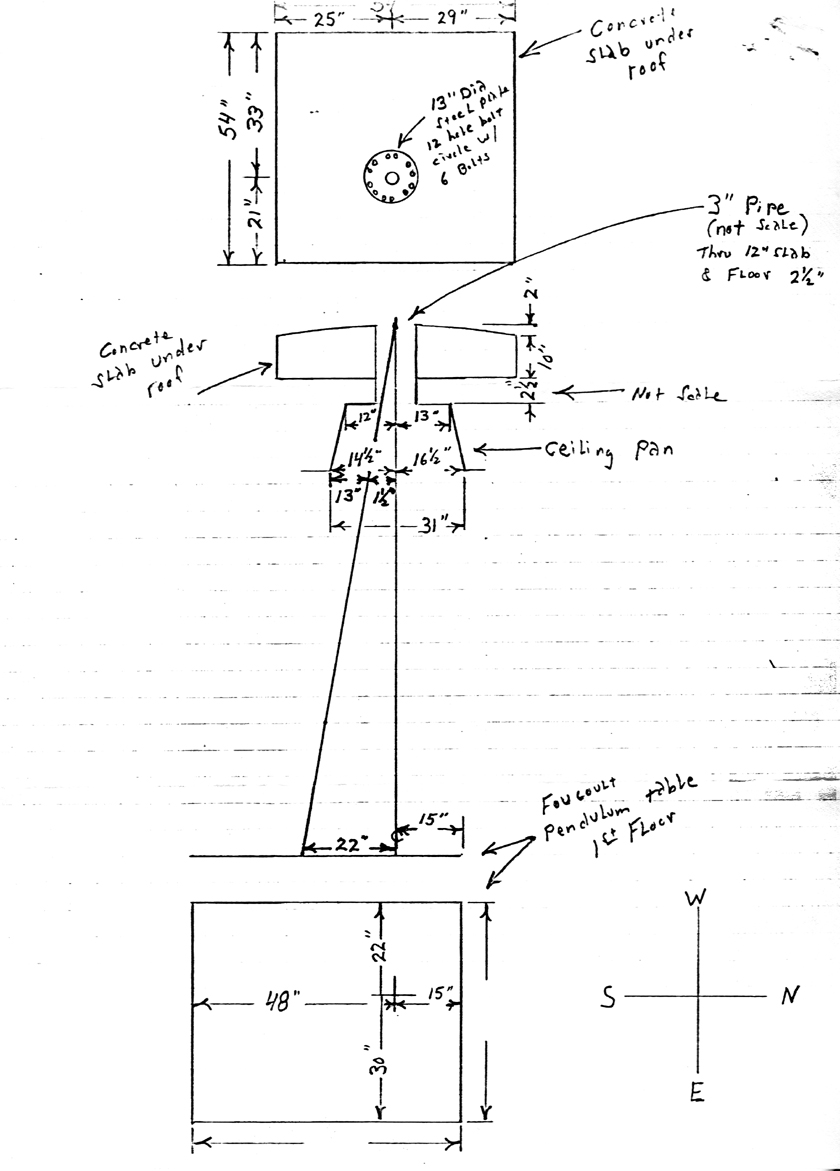 25" 29"
Concrete
slab under
roof
54"
33"
21"
13" Dia
Steel plate
12 hole bolt
circle w/
6 Bolts
3" Pipe
(not Scale)
Thru 12" slab
& Floor 2½"
Concrete
slab under
roof
2"
10"
2½"
Not Scale
12" 13"
Ceiling Pan
14½" 16½"
13" 1½"
31"
Foucoult
Pendulum table
1st Floor
15"
22"
22"
48" 15"
30"
W
S N
E